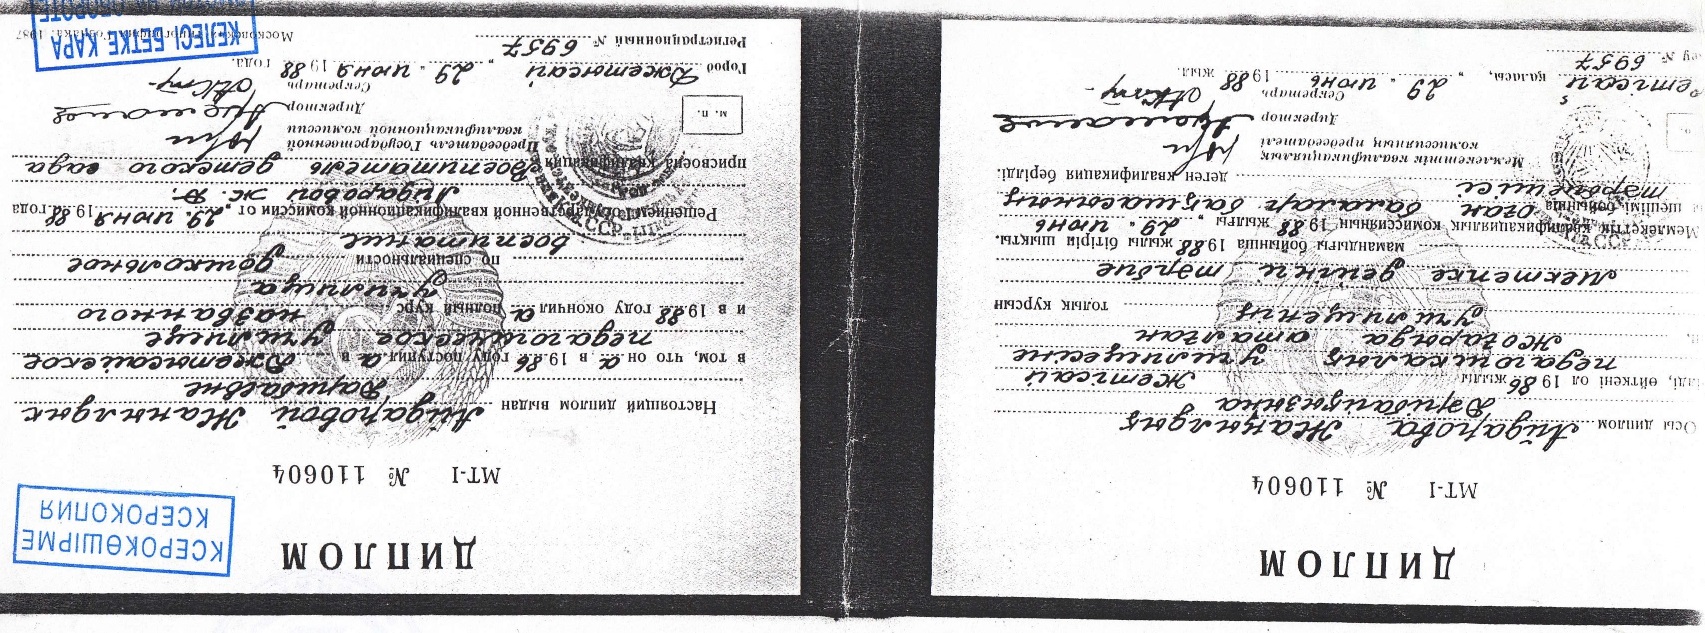 ДИПЛОМ
МТ-I № 110604
Осы диплом Айдарова Жаңылдық
Дәрибайқызына
өйткені ол 1986 жылы Жетісай
педагогикалық училищесіне
Жоғарыда аталған
училищенің толық курсын
мектепке дейінгі тәрбие
мамандығы бойынша 1988 жылы бітіріп шықты.
Мемлекеттік квалификациялық комиссияның 1988 жылғы „29" июнь
шешімі бойынша оған балалар бақшасының
тәрбиешісі деген квалификация берілді.
Мемлекеттік квалификациялық
комиссияның председателі
Директор
Секретарь
қаласы, „29" июнь 1988 жыл.
№ 6957
ДИПЛОМ
МТ-I № 110604
Настоящий диплом выдан Айдаровой Жанылдык
Дарибаевне
в том, что он а в 1986 году поступил а в Джетысайское
педагогическое училище
и в 1988 году окончил а полный курс названного
училища
по специальности дошкольное
воспитание
Решением Государственной квалификационной комиссии от „29" июня 1988 года
Айдаровой Ж. Д.
присвоена квалификация Воспитатель детского сада
Председатель Государственной
квалификационной комиссии
Директор
Секретарь
М. П.
Город Джетысай „29" июня 1988 года.
Регистрационный № 6957
Московская типография Гознака. 1987
КСЕРОКӨШІРМЕ
КСЕРОКОПИЯ
КЕЛЕСІ БЕТКЕ ҚАРА
НА ОБОРОТЕ